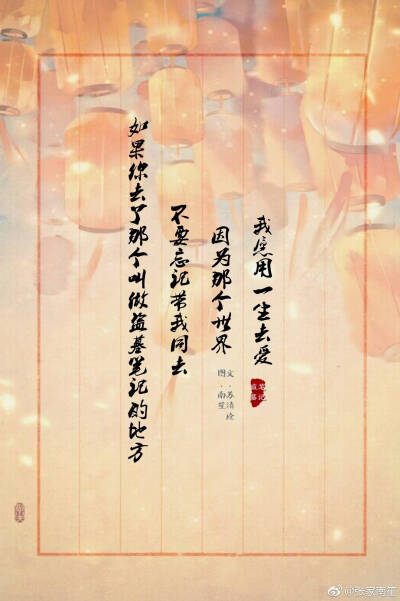 如果你去了那个叫做盗墓笔记的地方
不要忘记带我同去
因为那个世界
我愿用一生去爱
文.苏清
图.南笙
盗墓笔记
@张家南笙